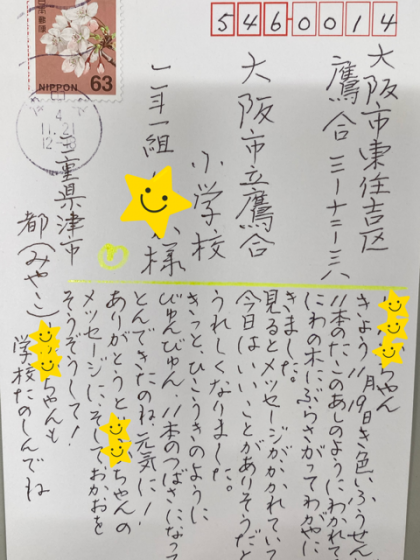 日本郵便
NIPPON 63
4
11.21
12-18
5460014
大阪市東住吉区
鷹合三-十三-三六
大阪市立鷹合
小学校
二年一組 様
三重県津市
都(みやこ)
ちゃん
きょう11月19日き色いふうせんが
11本のたこのあしのようにわかれて
にわの木にぶらさがってわがやに
きました。
見るとメッセージがかかれていて
今日はいいことがありそうだと
うれしくなりました。
きっとひこうきのように
びゅんびゅん、11本のつばさになって
とんできたのね元気に!
ありがとうと ちゃんの
メッセージに、そしておかおを
そうぞうして!
ちゃんも
学校たのしんでね